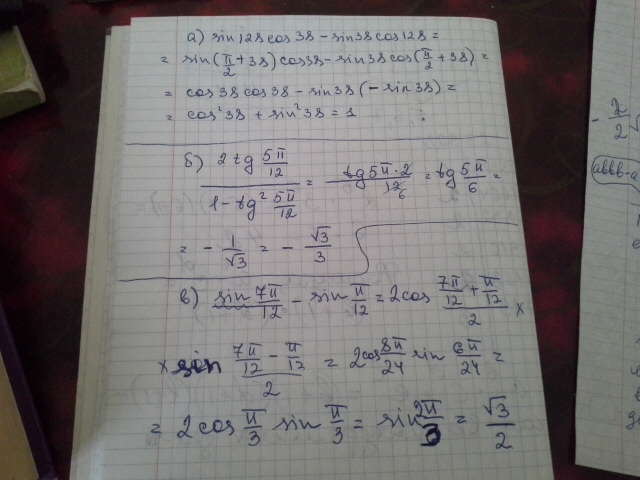 а) sin 128 cos 38 - sin 38 cos 128 =
= sin(π/2 + 38) cos 38 - sin 38 cos(π/2 + 38) =
= cos 38 cos 38 - sin 38 (- sin 38) =
= cos² 38 + sin² 38 = 1
б) 2 tg 5π/12 / 1 - tg² 5π/12 = tg 5π·2/12 6 = tg 5π/6 =
= - 1/√3 = - √3/3
в) sin 7π/12 - sin π/12 = 2 cos (7π/12 + π/12)/2 ×
× sin (7π/12 - π/12)/2 = 2 cos 8π/24 sin 6π/24 =
= 2 cos π/3 sin π/3 = sin 2π/3 = √3/2